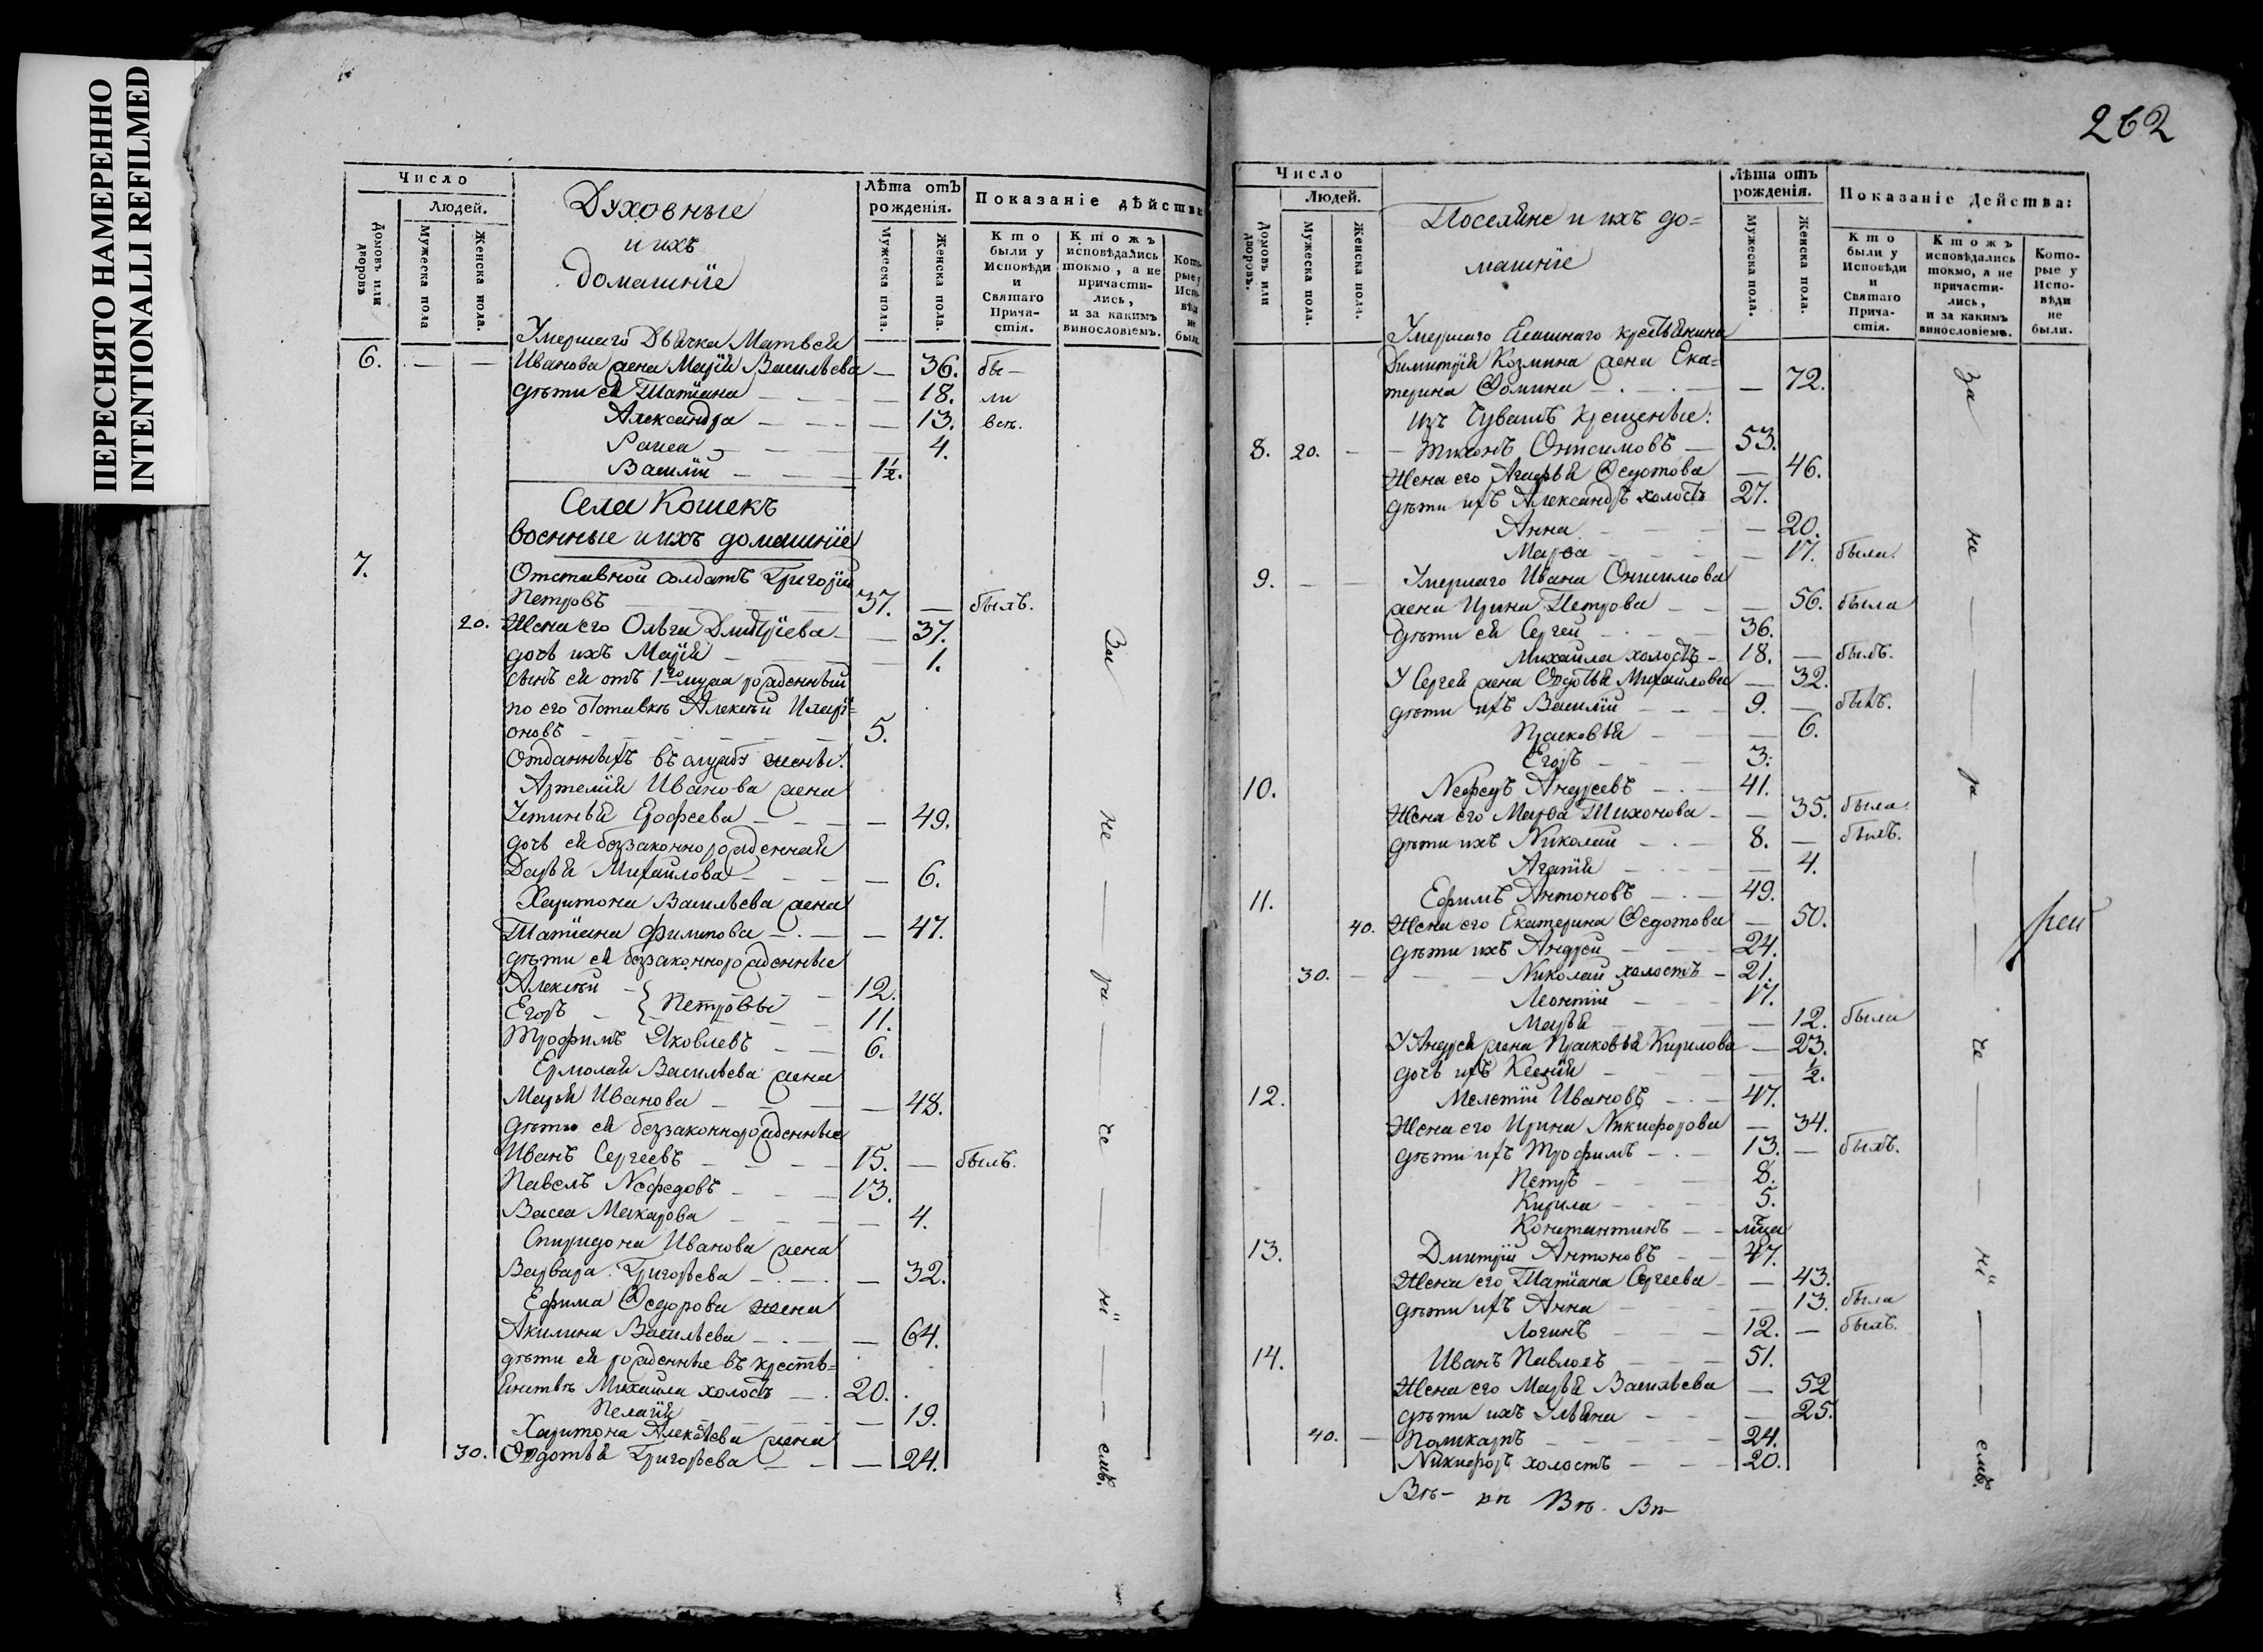 ПЕРЕСНЯТО НАМЕРЕННО
INTENTIONALLI REFILMED
Число
Людей.
Домовъ или дворовъ
Мужеска пола
Женска пола.
Духовные
и ихъ
домашнїе
Лѣта отъ
рожденія.
Мужеска пола.
Женска пола.
Показаніе дѣйства
Кто были у Исповѣди и Святаго Причастія.
Ктожъ исповѣдались токмо, а не причастились, и за какимъ винословіемъ.
Которые у Исповѣди не были.
Умершаго Дьячка Матвея
6. — — Иванова жена Марїя Васильева — 36. бы—
дѣти ея Татїана — 18. ли
Александра — 13. всѣ.
Раиса — 4.
Василїй 1½.
Села Кошекъ
военные и ихъ домашнїе
7. Отставной солдатъ Григорїй
Петровъ 37. — былъ.
20. Жена его Ольга Дмитрїева — 37.
дочь ихъ Марїя — 1.
сынъ ея отъ 1го мужа рожденный
по его отставкѣ Алексѣй Илари=
оновъ 5.
Отданныхъ въ службу жены:
Артемїя Иванова жена
Устинья Ерофеева — 49.
дочь ея беззаконнорожденная
Дарья Михайлова — 6.
Харитона Васильева жена
Татїана Филипова — 47.
дѣти ея беззаконнорожденные
Алексѣй 12.
Егоръ } Петровы 11.
Трофимъ Яковлевъ 6.
Ермолая Васильева жена
Марья Иванова — 48.
дѣти ея беззаконнорожденные
Иванъ Сергеевъ 15. — былъ.
Павелъ Нефедовъ 13.
Васса Макарова — 4.
Спиридона Иванова жена
Варвара Григорьева — 32.
Ефима Ѳедорова жена
Акилина Васильева — 64.
дѣти ея рожденные въ кресть=
янствѣ Михайла холостъ 20.
Пелагїя — 19.
Харитона Алексѣева жена
30. Ѳедотья Григорьева — 24.
За не — ра — че — нї — емъ.
262
Число
Людей.
Домовъ или дворовъ.
Мужеска пола.
Женска пола.
Поселяне и ихъ до=
машнїе
Лѣта отъ
рожденія.
Мужеска пола.
Женска пола.
Показаніе Действа:
Кто были у Исповѣди и Святаго Причастія.
Ктожъ исповѣдались токмо, а не причастились, и за какимъ винословіемъ.
Которые у Исповѣди не были.
Умершаго Ясашнаго крестьянина
Димитрїя Козмина жена Ека=
терина Фомина — 72.
Изъ Чувашъ крещеные:
8. 20. — Тихонъ Онисимовъ — 53.
Жена его Агафья Ѳедотова — 46.
дѣти ихъ Александръ холостъ 27.
Анна — 20.
Марѳа — 17. была.
9. — — Умершаго Ивана Онисимова
жена Ирина Петрова — 56. была
дѣти ея Сергей 36.
Михайла холостъ 18. — былъ.
У Сергея жена Ѳедотья Михайлова — 32.
дѣти ихъ Василїй 9. — былъ.
Прасковья — 6.
Егоръ 3.
10. Нефедъ Андреевъ 41.
Жена его Марѳа Тихонова — 35. была.
дѣти ихъ Николай 8. — былъ.
Агапїя — 4.
11. Ефимъ Антоновъ 49.
40. Жена его Екатерина Ѳедотова — 50.
дѣти ихъ Андрей 24.
30. — Николай холостъ 21.
Леонтїй 17.
Марья — 12. была
У Андрея жена Прасковья Кирилова — 23.
дочь ихъ Ксенїя — ½.
12. Мелетїй Ивановъ 47.
Жена его Ирина Никифорова — 34.
дѣти ихъ Трофимъ 13. — былъ.
Петръ 8.
Кирила 5.
Константинъ
13. Дмитрїй Антоновъ 47.
Жена его Татїана Сергеева — 43.
дѣти ихъ Анна — 13. была
Логинъ 12. — былъ.
14. Иванъ Павловъ 51.
Жена его Марья Васильева — 52
дѣти ихъ Ульяна — 25.
40. — Поликарпъ 24.
Никифоръ холостъ 20.
За не — ра — че — нї — емъ.